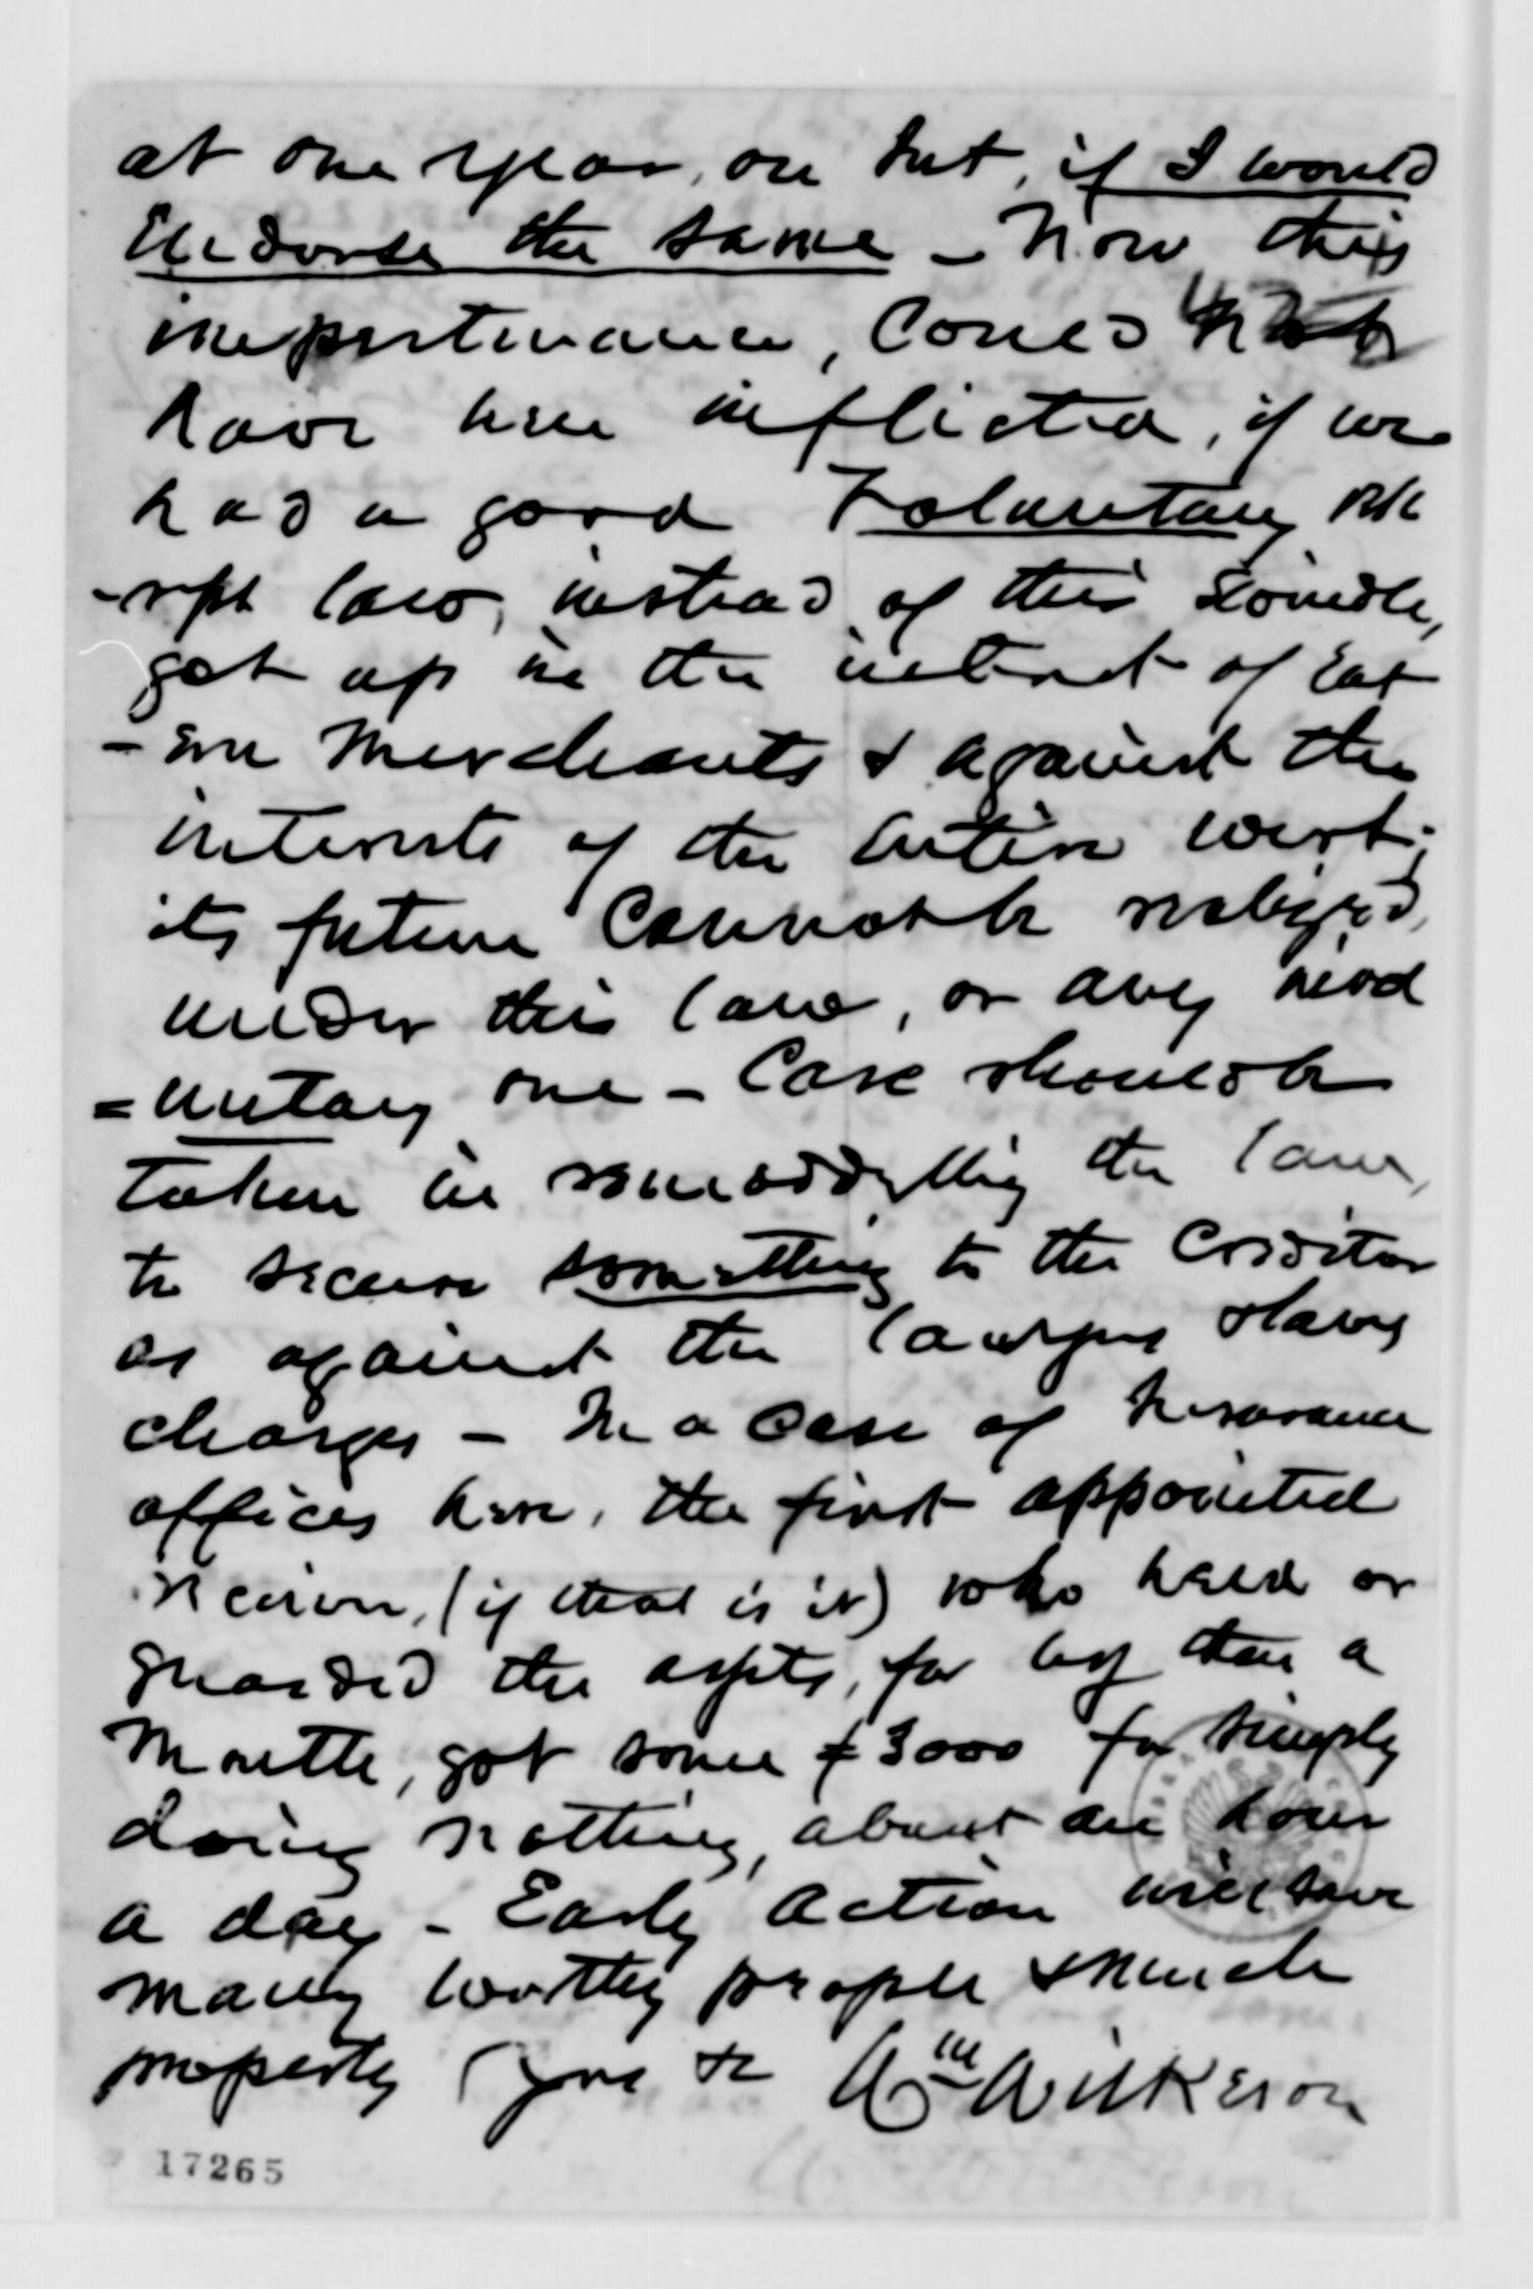 at one year, on int, if I would
Endorse the same - Now this
impertinance, Could not
have been inflicted, if we
had a good Voluntary Bk
-rupt law, instead of this swindle,
got up in the interest of East
-ern Merchants & against the
interests of the entire west.
its future Cannot be
under this law, or any
one - Care should be
taken in the law,
to secure something to the Creditor
as against the lawyers
charges - In a case of Insurance
offices here, the first appointed
receiver, (if that is it) who held or
guarded the assets, for less than a
Month, got some $3000 for simply
doing nothing, about an hour
a day - Early action will save
many worthy people & much
property Yours &c Wm Wilkeson
17265